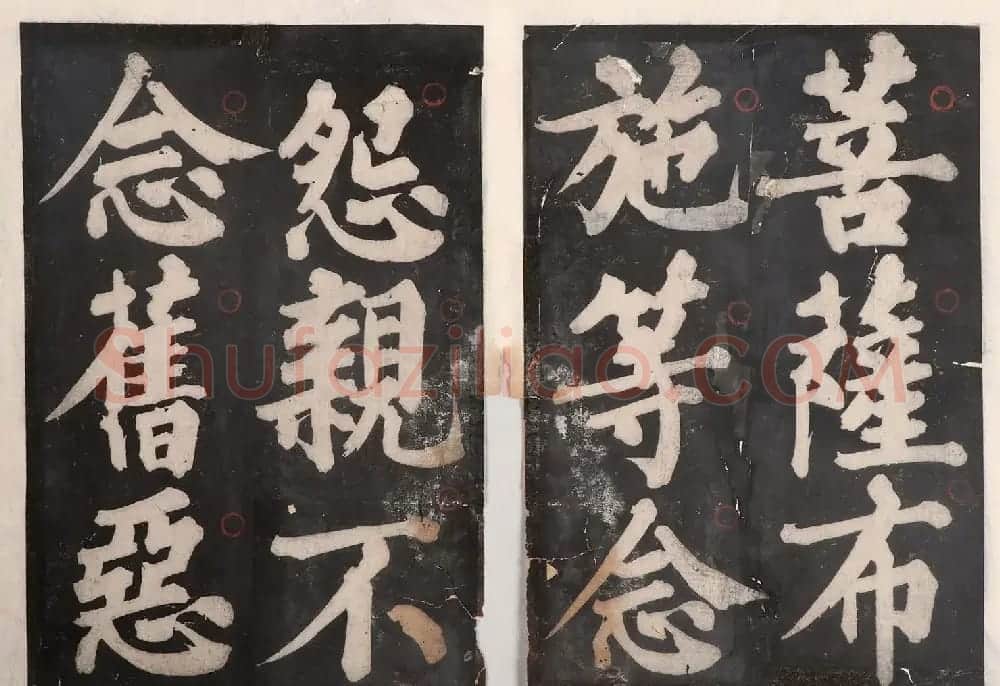 菩薩布
施等念
怨親不
念舊惡
Shufaziliao.COM